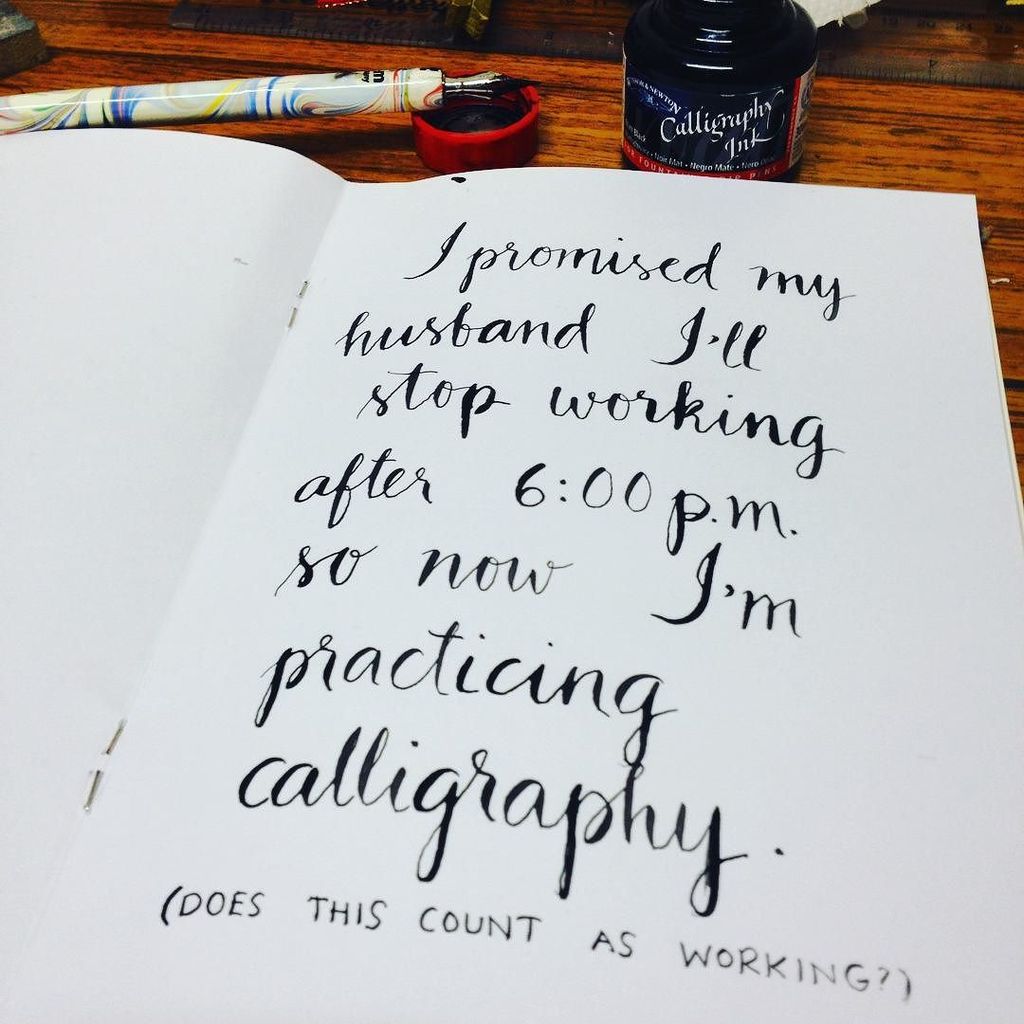 WINSOR & NEWTON
Calligraphy
Ink
Noir Mat • Negro Mate • Nero
I promised my
husband I'll
stop working
after 6:00 p.m.
so now I'm
practicing
calligraphy.
(DOES THIS COUNT AS WORKING?)